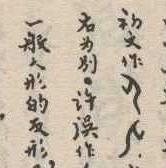 初文作
名为别。许误作
一般人形的反形